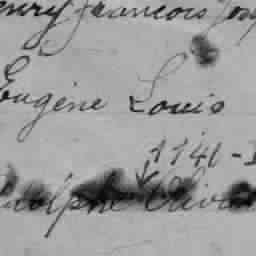 Henry Francois Jos
Eugène Louis
1141 -
Adolphe Olivier